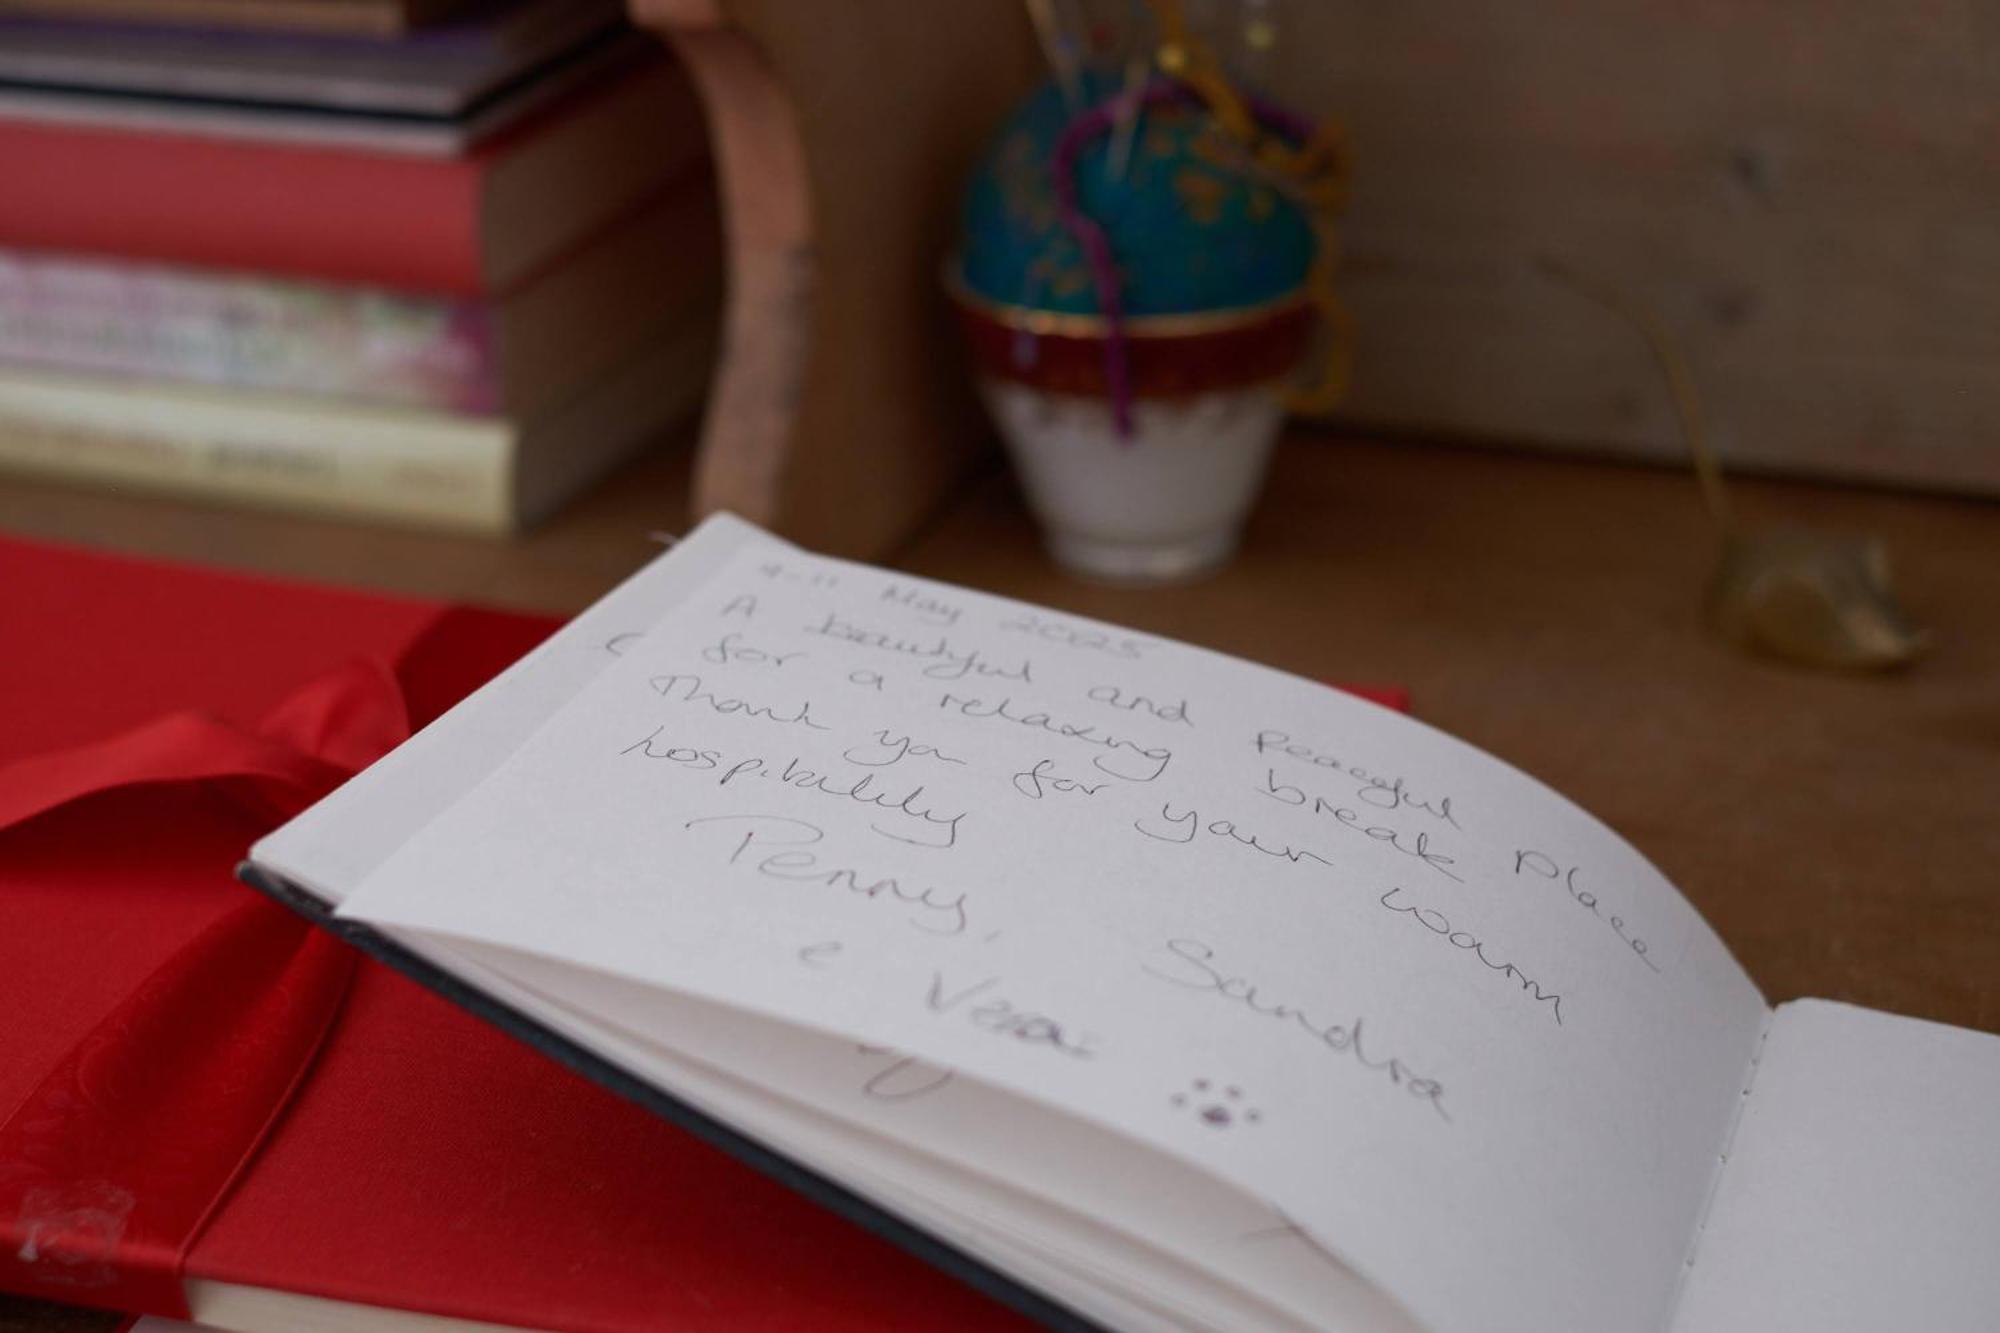 4-11 May 2025
A beautiful and Peaceful Place
for a relaxing break
Thank you for your warm
hospitality
Penny, Sandra
e Vera